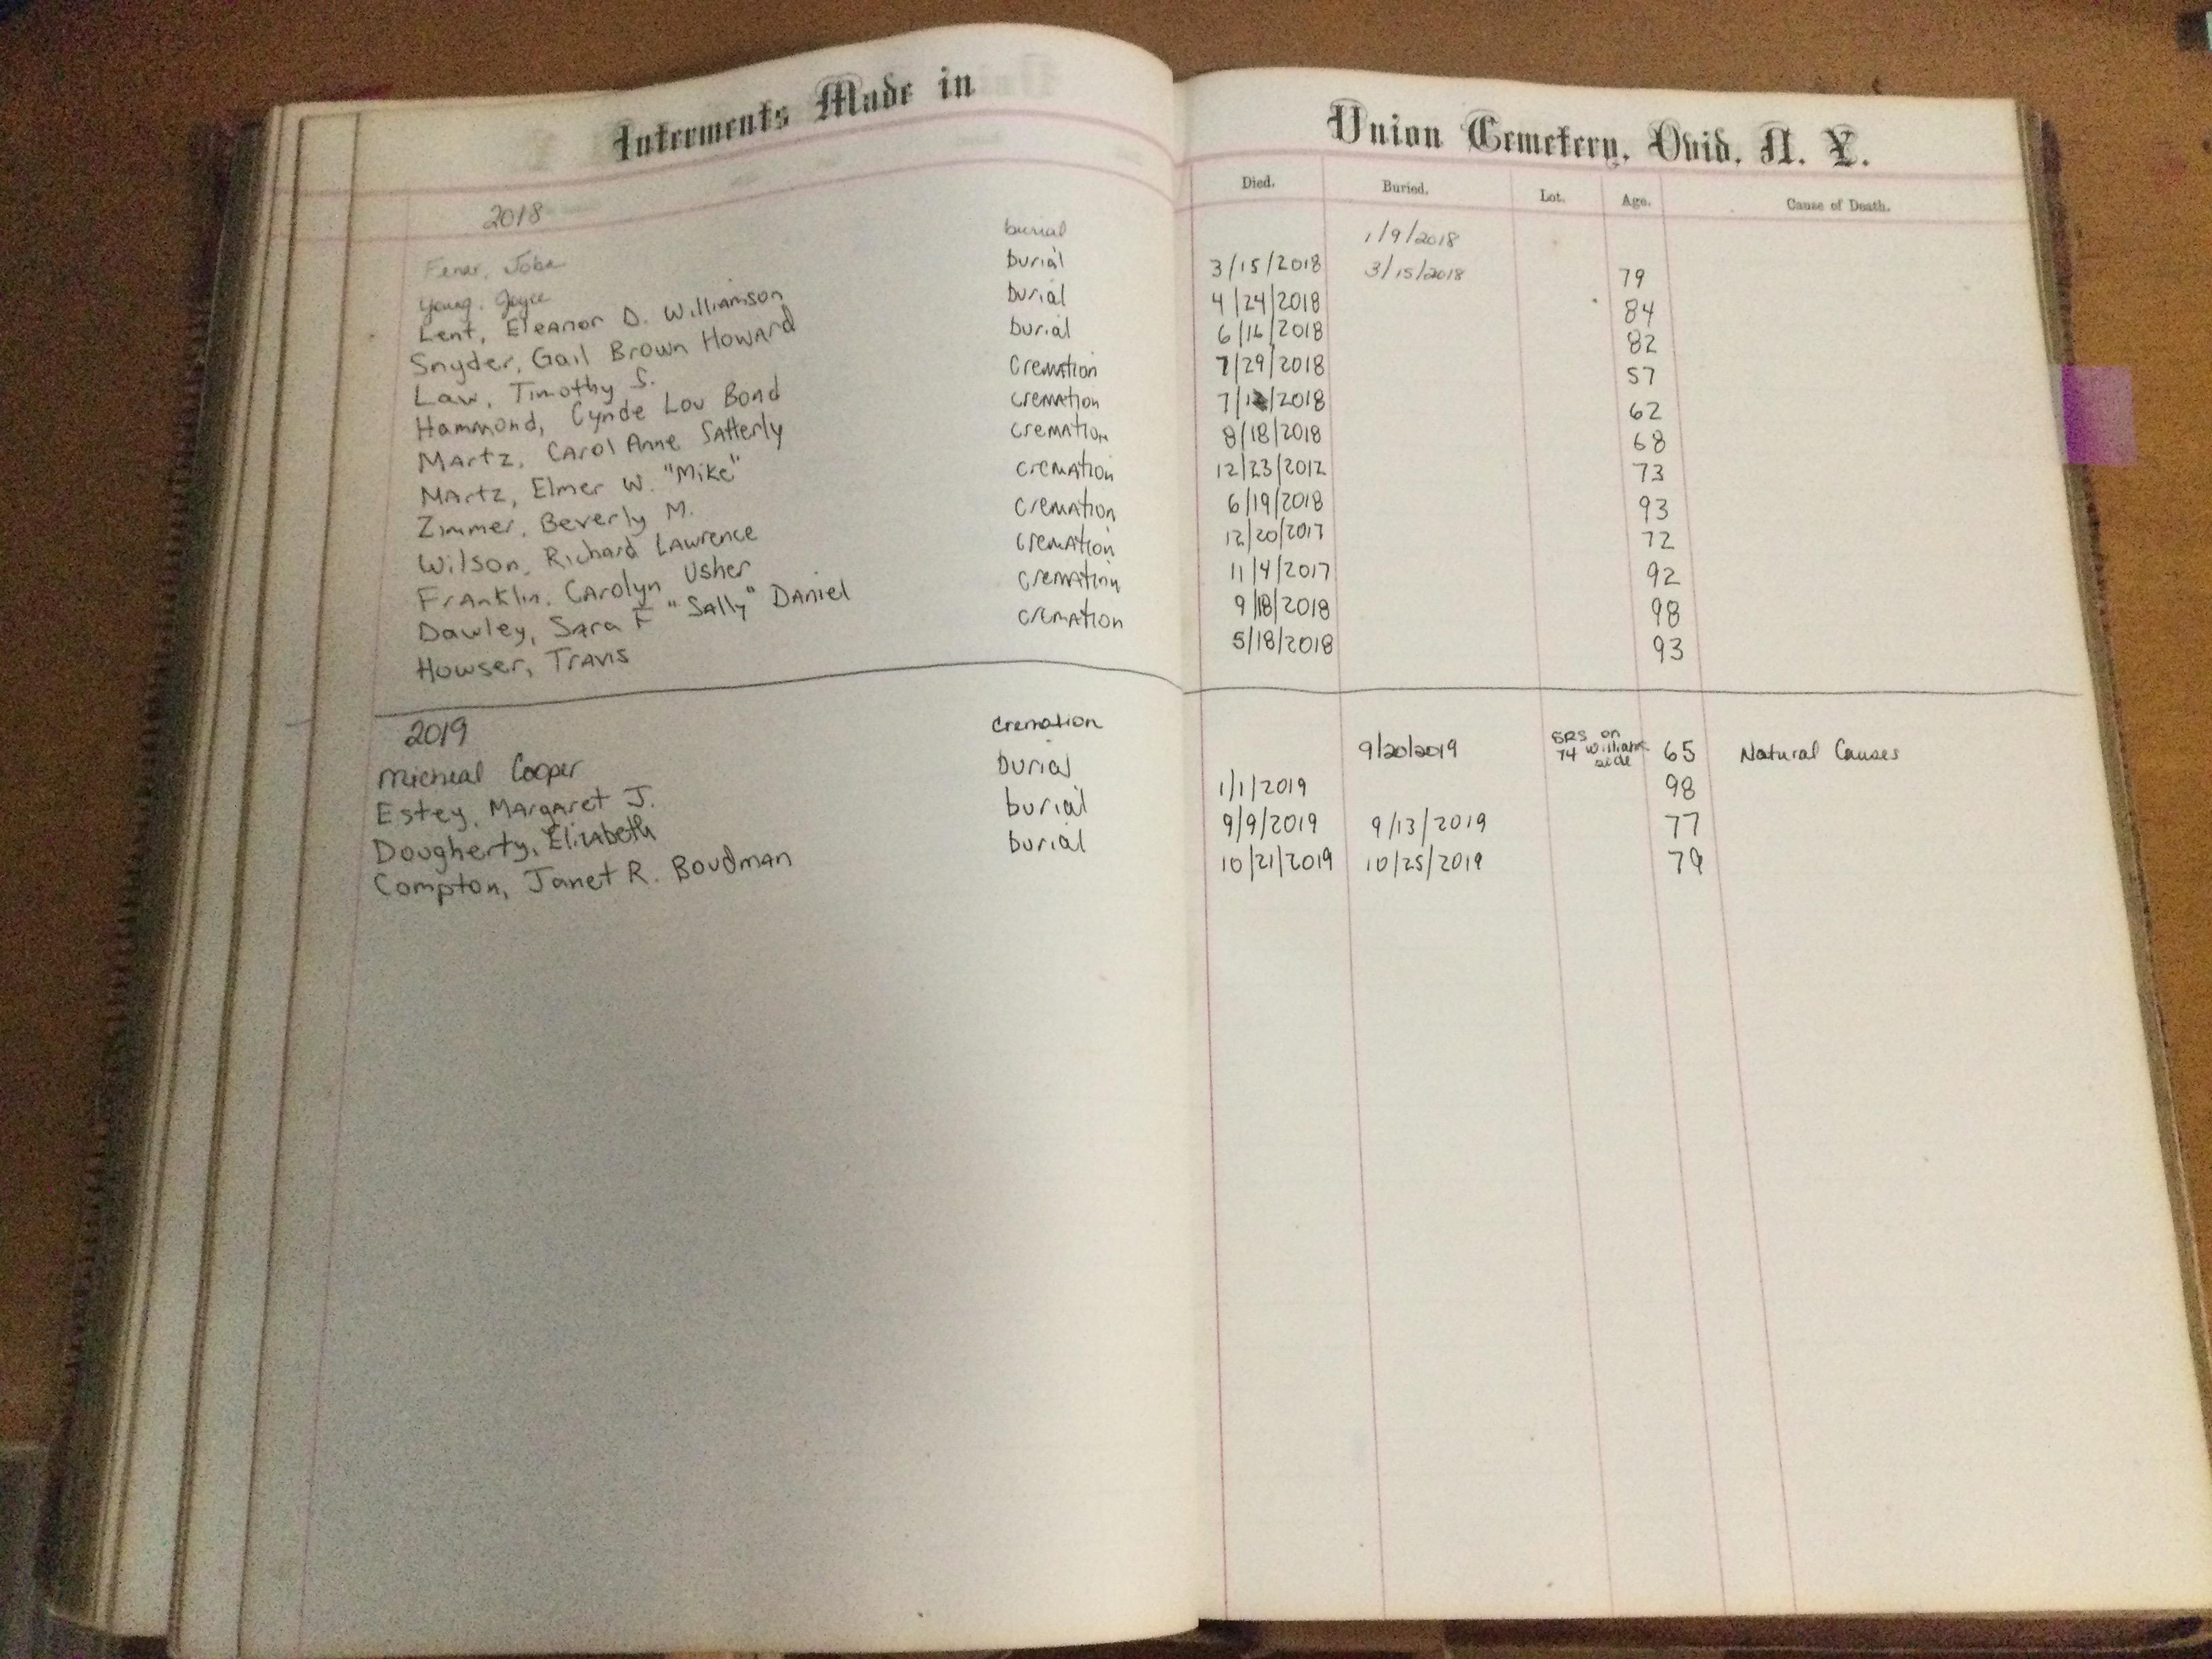 Interments Made in
2018
burial
Young, Joyce burial
Lent, Eleanor D. Williamson burial
Snyder, Gail Brown Howard burial
Law, Timothy S. Cremation
Hammond, Cynde Lou Bond cremation
Martz, Carol Anne Satterly cremation
Martz, Elmer W. "Mike" cremation
Zimmer, Beverly M. cremation
Wilson, Richard Lawrence cremation
Franklin, Carolyn Usher cremation
Dawley, Sara F "Sally" Daniel cremation
Howser, Travis
2019
Micheal Cooper cremation
Estey, Margaret J. burial
Dougherty, Elizabeth burial
Compton, Janet R. Boudman burial
Union Cemetery, Ovid, N. Y.
Died. Buried. Lot. Age. Cause of Death.
1/9/2018
3/15/2018 3/15/2018 79
4/24/2018 84
6/16/2018 82
7/29/2018 57
62
8/18/2018 68
12/23/2012 73
6/19/2018 93
12/20/2017 72
11/4/2017 92
9/18/2018 98
5/18/2018 93
9/20/2019 74 on side 65 Natural Causes
1/1/2019 98
9/9/2019 9/13/2019 77
10/21/2019 10/25/2019 79